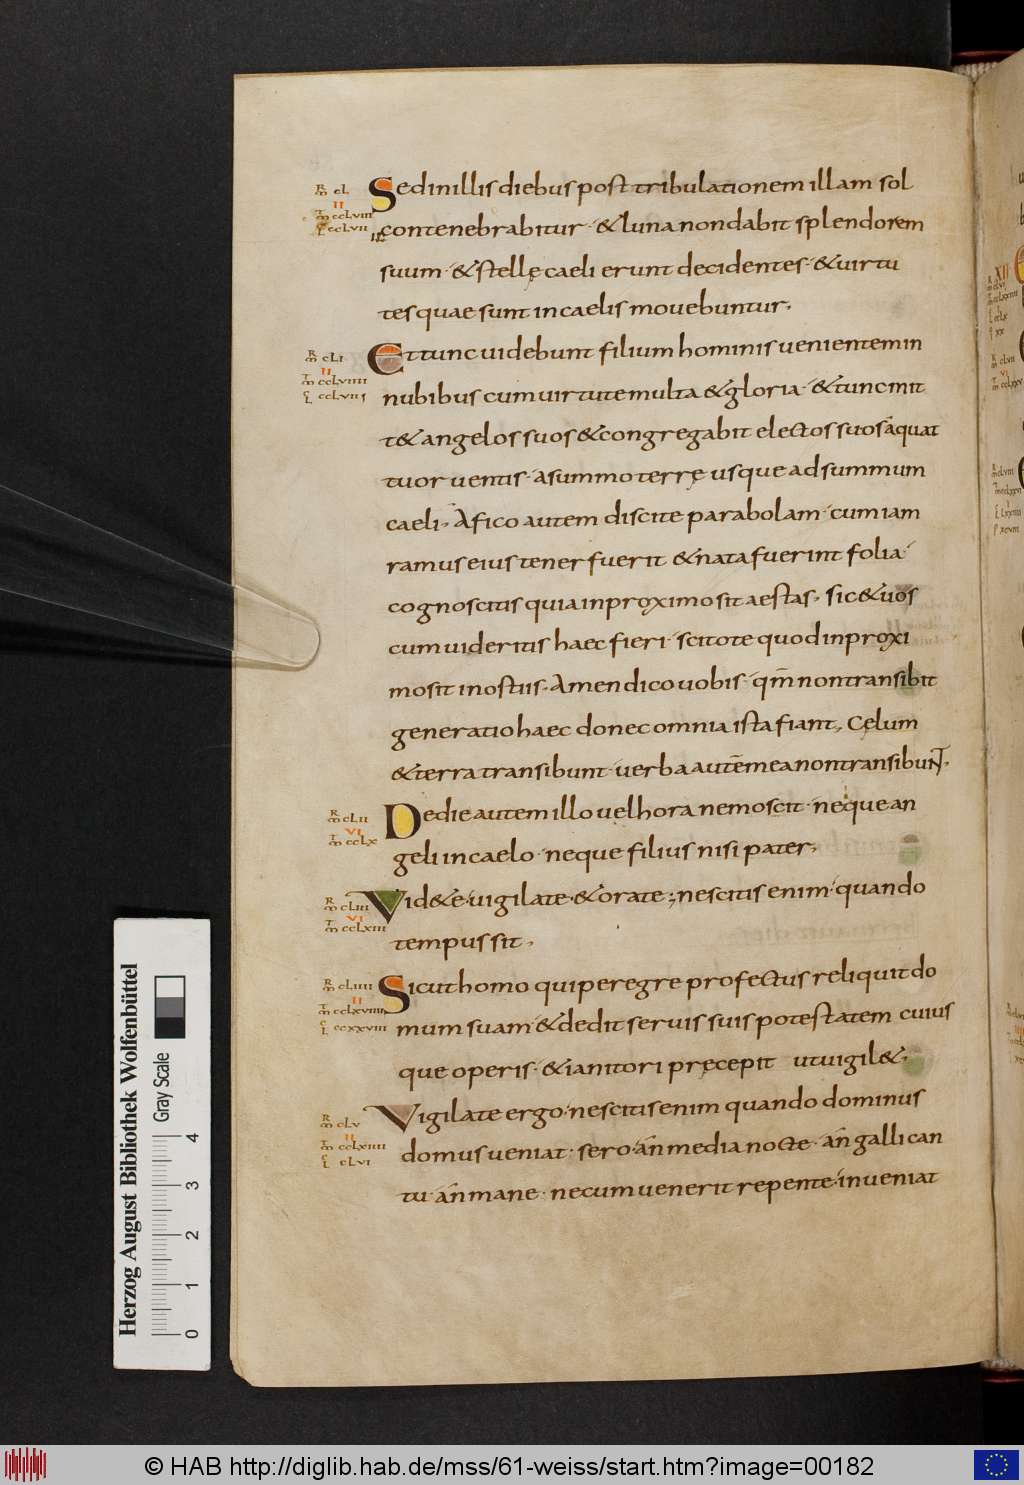 Sedinillis diebus post tribulationem illam sol
contenebrabitur · & luna non dabit splendorem
suum · & stellę caeli erunt decidentes · & uirtu
tes quae sunt incaelis mouebuntur ·
Et tunc uidebunt filium hominis uenientem in
nubibus cum uirtute multa & gloria · & tunc mit
t& angelos suos & congregabit electos suos a quat
tuor uentis · a summo terrę usque ad summum
caeli · A fico autem discite parabolam · cum iam
ramus eius tener fuerit & nata fuerint folia ·
cognoscitis quia inproximo sit aestas · sic & uos
cum uideritis haec fieri · scitote quod inproxi
mo sit inostiis · Amen dico uobis · qm̄ non transibit
generatio haec donec omnia ista fiant · Cęlum
& terra transibunt · uerba autē mea non transibunt ·
De die autem illo uel hora nemo scit · neque an
geli in caelo · neque filius nisi pater ·
Uid&e · uigilate · & orate ; nescitis enim · quando
tempus sit ·
Sicut homo qui peregre profectus reliquit do
mum suam · & dedit seruis suis potestatem cuius
que operis · & ianitori pręcepit ut uigil& ·
Uigilate ergo · nescitis enim quando dominus
domus ueniat · sero · an media nocte · an galli can
tu · an mane · ne cum uenerit repente · inueniat
R m CL
II
M CCLVIII
L CCLVII
R m CLI
II
M CCLVIIII
L CCLVII
R m CLII
VI
M CCLX
R m CLIII
VI
M CCLXIII
R m CLIIII
II
M CCLXVIIII
L CCXXVIII
R m CLV
II
M CCLXIIII
L CLVI
Herzog August Bibliothek Wolfenbüttel
Gray Scale
0 1 2 3 4
© HAB http://diglib.hab.de/mss/61-weiss/start.htm?image=00182